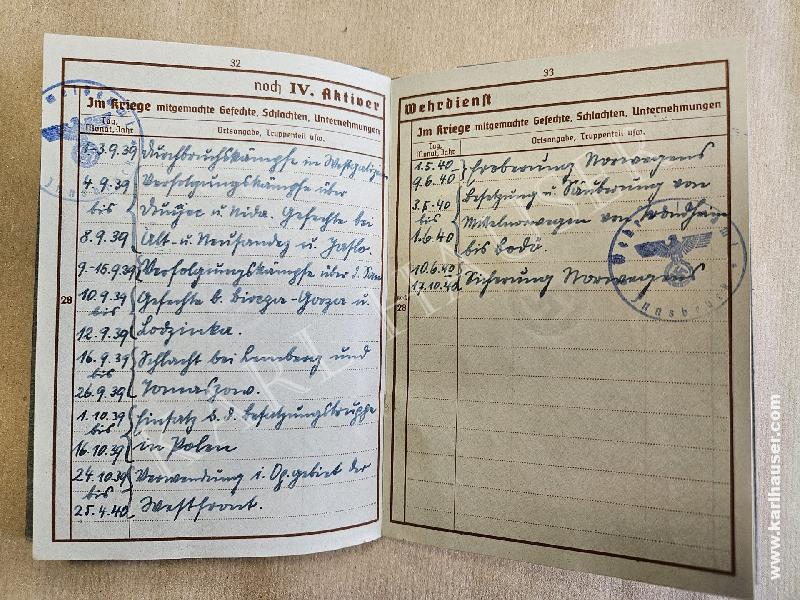 32
noch IV. Aktiver
Im Kriege mitgemachte Gefechte, Schlachten, Unternehmungen
Tag, Monat, Jahr
Ortsangabe, Truppenteil usw.
1.-3.9.39 Durchbruchskämpfe in Westgalizien
4.9.39 Verfolgungskämpfe über
bis Dunajec u. Nida. Gefechte bei
8.9.39 Alt- u. Neusandez u. Jaslo.
9.-15.9.39 Verfolgungskämpfe über d. San
10.9.39 Gefechte b. Bircza-Gorza u.
bis
12.9.39 Lodzinka.
16.9.39 Schlacht bei Lemberg und
bis
26.9.39 Tomaszow.
1.10.39 Einsatz d. d. Besatzungstruppe
bis
16.10.39 in Polen
24.10.39 Verwendung i. Op. gebiet der
bis
25.4.40 Westfront.
28
33
Wehrdienst
Im Kriege mitgemachte Gefechte, Schlachten, Unternehmungen
Tag, Monat, Jahr
Ortsangabe, Truppenteil usw.
1.5.40- Eroberung Norwegens
9.6.40
3.5.40 Besetzung u. Säuberung von
bis Mittelnorwegen von Drontheim
1.6.40 bis Bodö.
10.6.40 Sicherung Norwegens
17.10.40
28
KARL HAUSER
www.karlhauser.com